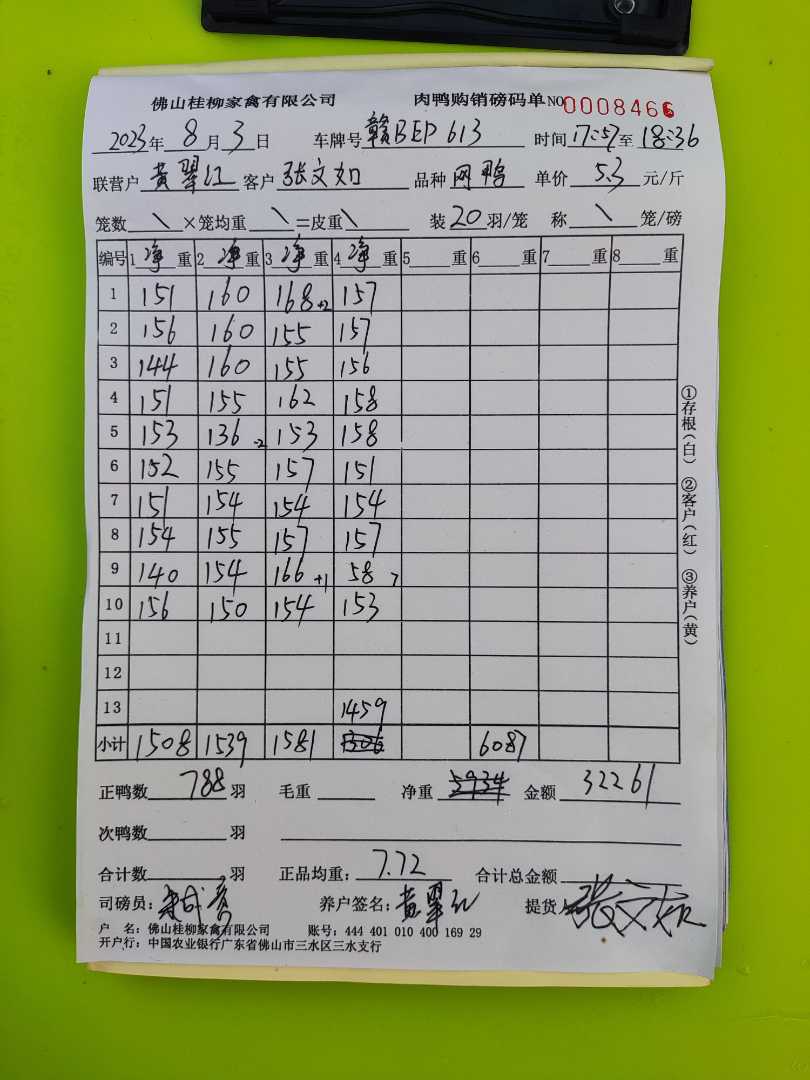 佛山桂柳家禽有限公司 肉鸭购销磅码单 NO 0008466
2023年 8月 3日 车牌号 赣BEP613 时间 17:57至 18:36
联营户 黄翠红 客户 张文如 品种 网鸭 单价 5.3 元/斤
笼数 \ ×笼均重 \ =皮重 \ 装 20 羽/笼 称 \ 笼/磅
编号 1 净 重 2 净 重 3 净 重 4 净 重 5 重 6 重 7 重 8 重
1 151 160 168 +2 157
2 156 160 155 157
3 144 160 155 156
4 151 155 162 158
5 153 136 -2 153 158
6 152 155 157 151
7 151 154 154 154
8 154 155 157 157
9 140 154 166 +1 58 7
10 156 150 154 153
11
12
13 1459
小计 1508 1539 1581 6087
正鸭数 788 羽 毛重 净重 5934 金额 32261
次鸭数 羽
合计数 羽 正品均重: 7.72 合计总金额
司磅员: 养户签名: 黄翠红 提货人 张文如
户 名: 佛山桂柳家禽有限公司 账号: 444 401 010 400 169 29
开户行: 中国农业银行广东省佛山市三水区三水支行
①存根(白) ②客户(红) ③养户(黄)